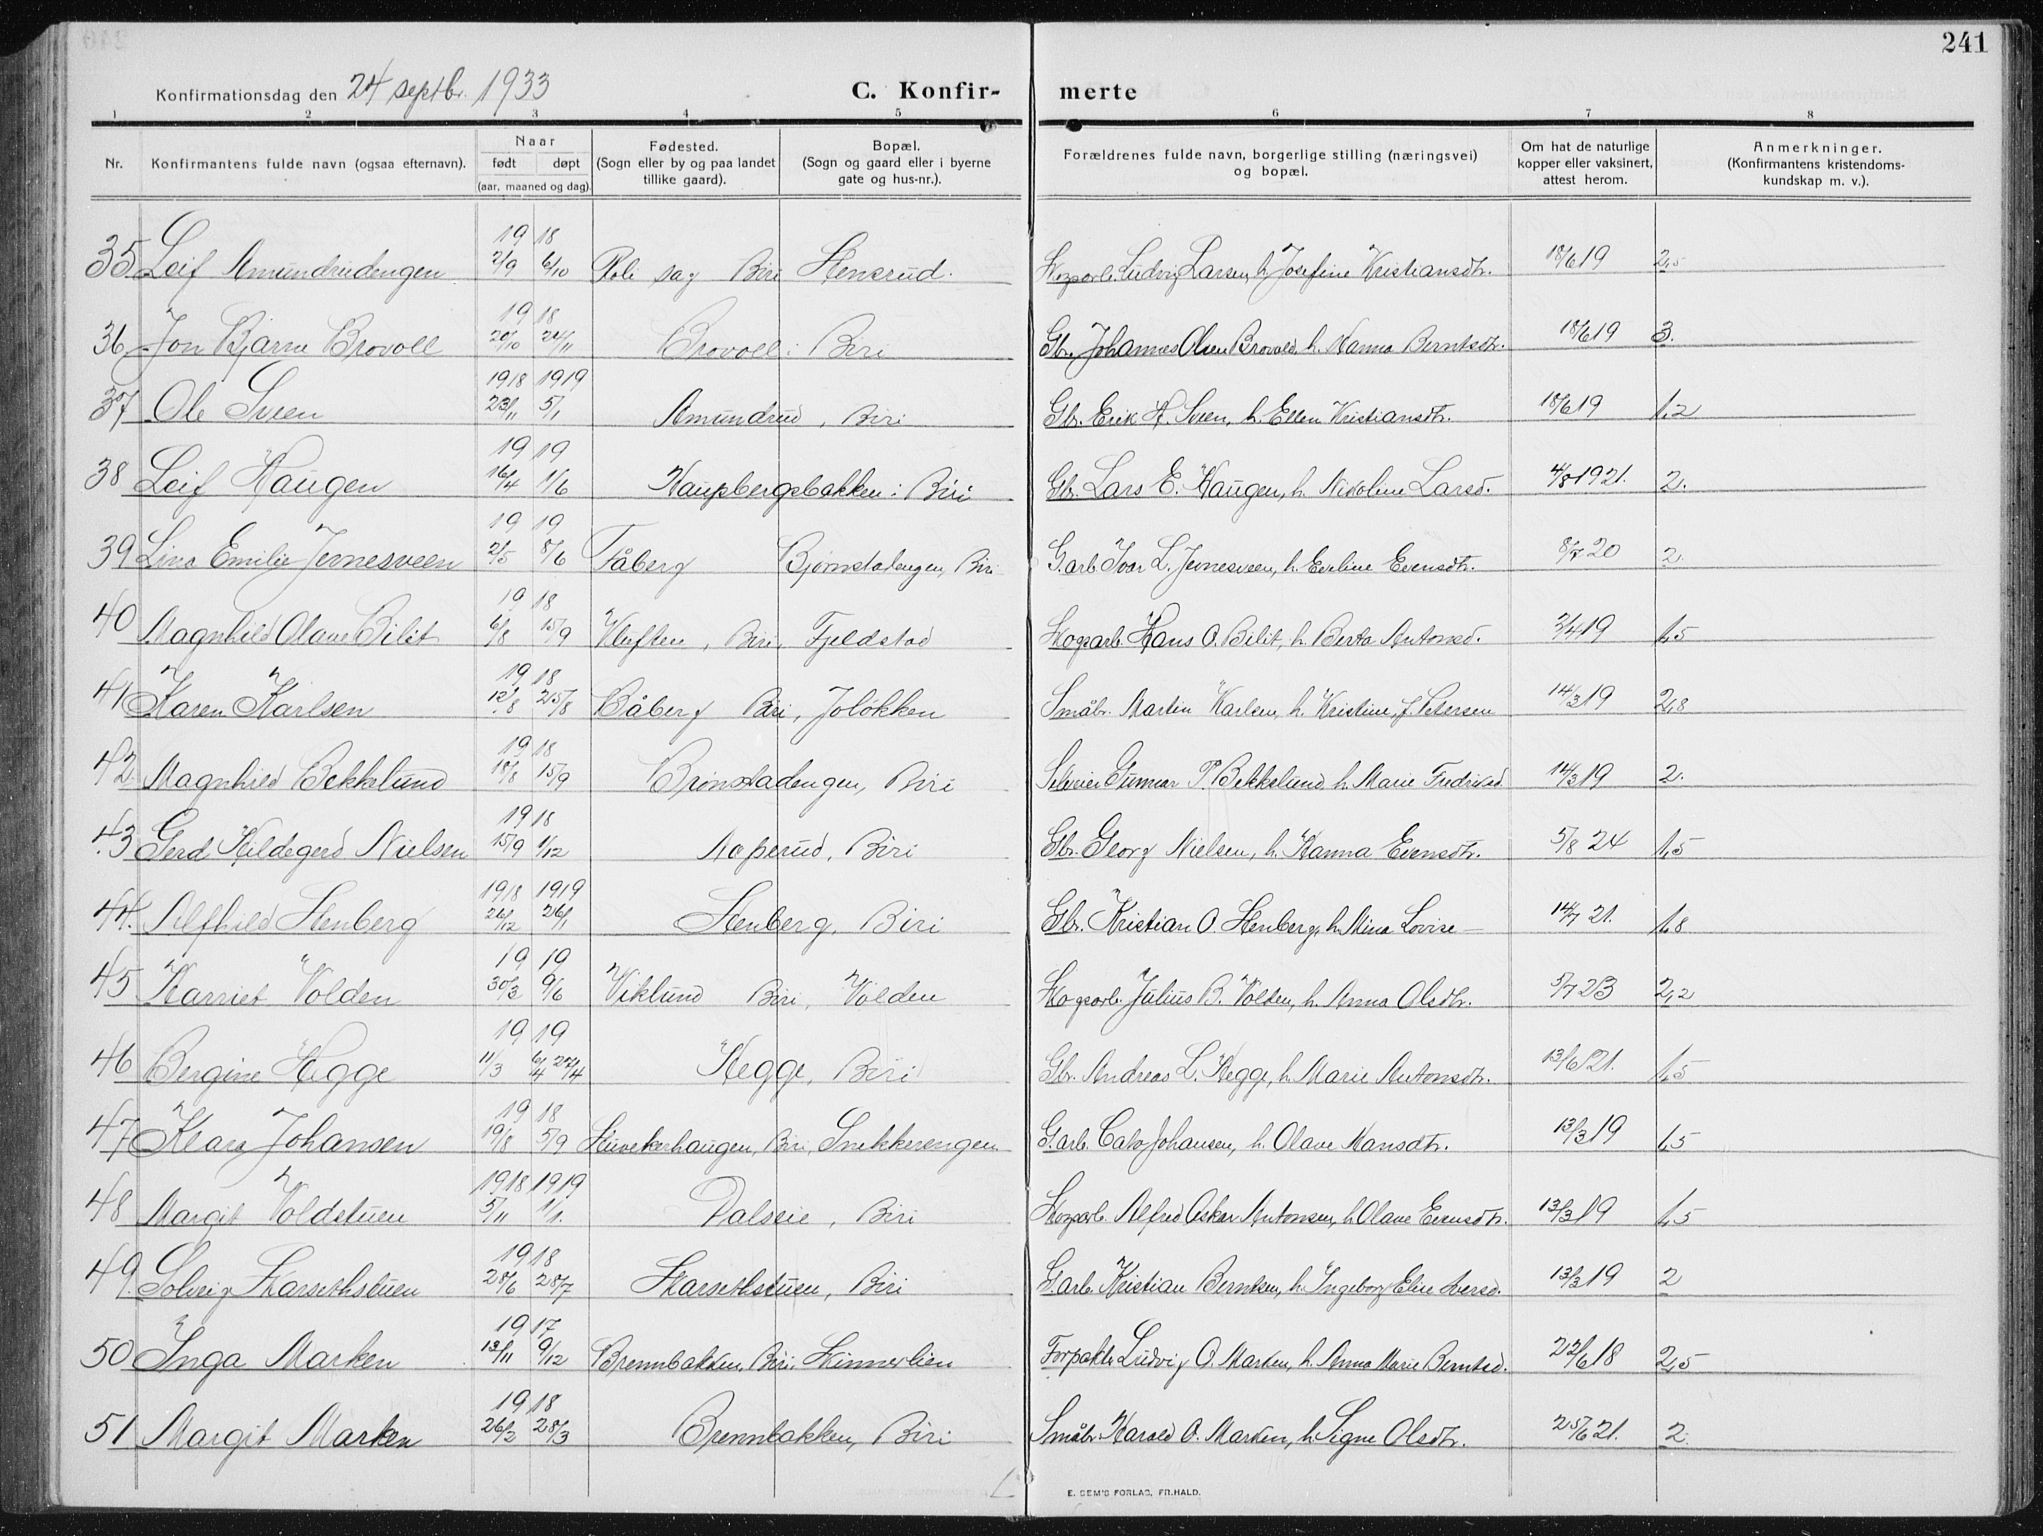 241
Konfirmationsdag den 24 septbr. 1933
C. Konfir- merte
1 2 3 4 5 6 7 8
Nr. Konfirmantens fulde navn (ogsaa efternavn). Naar født døpt (aar, maaned og dag). Fødested. (Sogn eller by og paa landet tillike gaard). Bopæl. (Sogn og gaard eller i byerne gate og hus-nr.). Forældrenes fulde navn, borgerlige stilling (næringsvei) og bopæl. Om hat de naturlige kopper eller vaksinert, attest herom. Anmerkninger. (Konfirmantens kristendoms- kundskap m. v.).
35 Leif Amundrudengen 19 18 2/9 6/10 Biri Stensrud. Skogarb. Ludvig Larsen, h. Josefine Kristiansdtr. 18/6 19 2,5
36 Jon Bjarne Brovoll 19 18 20/10 24/11 Brovoll i Biri Gbr. Johannes Olsen Brovold, h. Hanna Berntsdtr. 18/6 19 3.
37 Ole Sveen 1918 1919 23/11 5/1 Amundrud, Biri Gbr. Erik H. Sveen, h. Ellen Kristiansdtr. 18/6 19 1,2
38 Leif Haugen 19 19 16/4 1/6 Haugsbergsbakken i Biri Gbr. Lars E. Haugen, h. Nikoline Larsd. 4/8 1921. 2.
39 Lina Emilie Jevnesveen 19 19 2/5 8/6 Fåberg Bjørnstadengen, Biri G.arb. Ivar L. Jevnesveen, h. Eveline Evensdtr. 8/7 20 2.
40 Magnhild Olave Bilit 19 18 6/8 15/9 Kluften, Biri, Fjeldstad Skogsarb. Hans O. Bilit, h. Berta Antonsd. 2/4 19 1,5
41 Karen Karlsen 19 18 12/8 25/8 Båberg Biri, Joløkken Småbr. Martin Karlsen, h. Kristine, f. Petersen 14/3 19 2,8
42. Magnhild Bekkelund 19 18 18/8 15/9 Brønstadengen, Biri Gunnar P. Bekkelund, h. Marie Fredriksd. 14/3 19 2.
43 Gerd Hildegerd Nielsen 19 18 15/9 1/12 Noperud, Biri Gbr. Georg Nielsen, h. Hanna Evensdtr. 5/8 24 1,5
44. Alfhild Stenberg 1918 1919 26/12 26/1 Stenberg, Biri Gbr. Kristian O. Stenberg, h. Mina Lovise — 14/7 21. 1,8
45 Harriet Volden 19 19 30/3 9/6 Viklund Biri, Volden Skogsarb. Julius B. Volden, h. Anna Olsdtr. 5/7 23 2,2
46 Bergine Hegge 19 19 11/3 6/4 27/4 Hegge, Biri Gbr. Andreas L. Hegge, h. Marie Antonsdtr. 13/6 21. 1,5
47 Klara Johansen 19 18 19/8 5/9 Biri, Snikkerengen G.arb. Johansen, h. Olave Hansdtr. 13/3 19 1,5
48 Margit Voldstuen 1918 1919 5/11 1/1. Dalseie, Biri Skogarb. Alfred Oskar Antonsen, h. Olave Evensdtr. 13/3 19 1,5
49. Solveig Skarsethstuen 19 18 28/6 28/7 Skarsethstuen, Biri G.arb. Kristian Berntsen, h. Ingeborg Elise Iversd. 13/3 19 2
50 Inga Marken 19 17 13/11 9/12 Brennbakken, Biri, Skinnerlien Forpakter Ludvig O. Marken, h. Anna Marie Berntsd. 22/6 18 2,5
51 Margit Marken 19 18 26/2 28/3 Brennbakken, Biri Småbr. Harald O. Marken, h. Signe Olsdtr. 25/6 21. 2.
E. SEM'S FORLAG, FR.HALD.